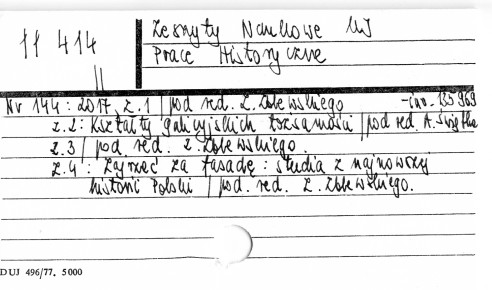 11 414
Zeszyty Naukowe UJ
Prace Historyczne
Nr 144 : 2017, z. 1 / pod red. Z. Zblewskiego - inw. 135969
z. 2 : Kształty galicyjskich tożsamości / pod red. A. Świątka
z. 3 / pod red. Z. Zblewskiego.
z. 4 : Zajrzeć za fasadę : studia z najnowszej
historii Polski / pod. red. Z. Zblewskiego.
DUJ 496/77. 5000